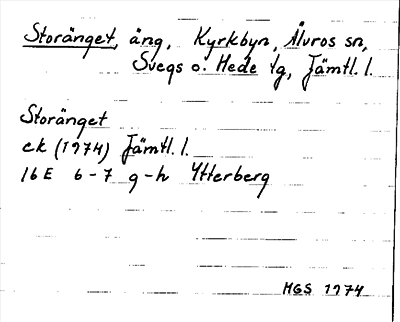 Storänget, äng, Kyrkbyn, Älvros sn,
Svegs o. Hede tg, Jämtl. l.
Storänget
ek (1974) Jämtl. l.
16E 6-7 g-h Ytterberg
MGS 1974